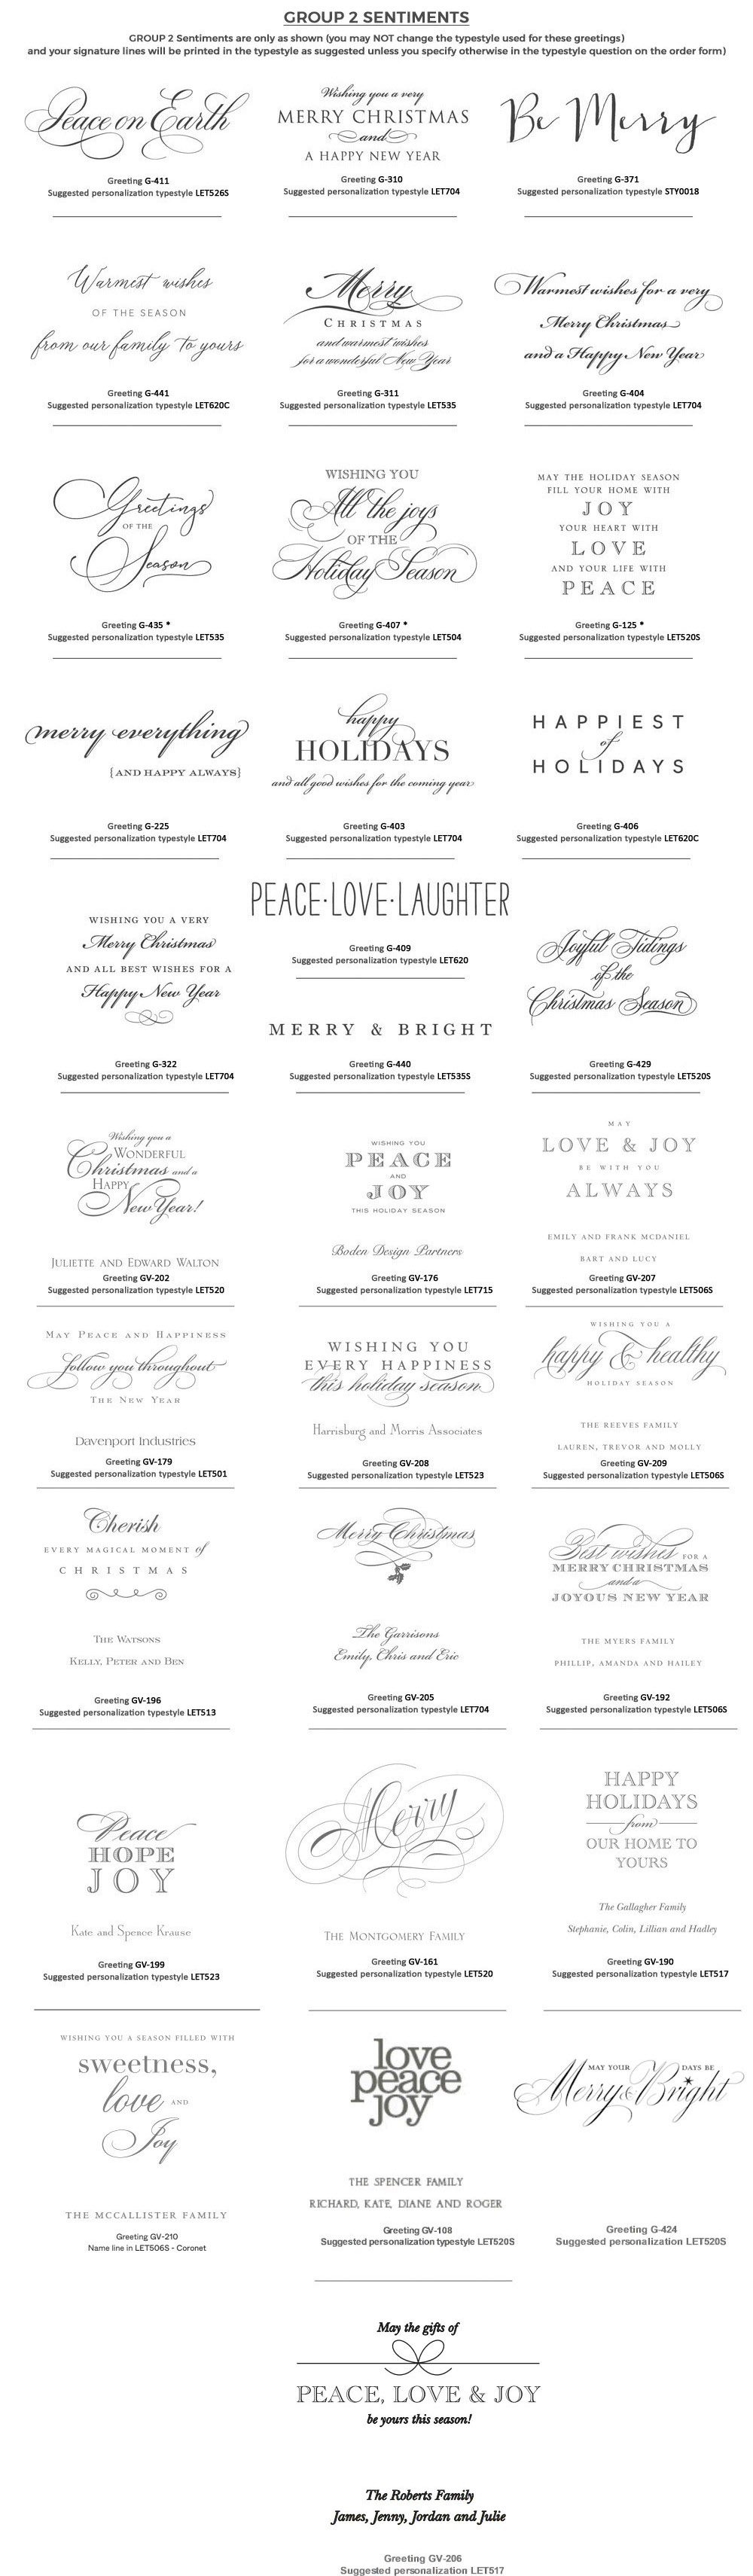 GROUP 2 SENTIMENTS
GROUP 2 Sentiments are only as shown (you may NOT change the typestyle used for these greetings)
and your signature lines will be printed in the typestyle as suggested unless you specify otherwise in the typestyle question on the order form)
Peace on Earth
Greeting G-411
Suggested personalization typestyle LET526S
Wishing you a very
MERRY CHRISTMAS
and
A HAPPY NEW YEAR
Greeting G-310
Suggested personalization typestyle LET704
Be Merry
Greeting G-371
Suggested personalization typestyle STY0018
Warmest wishes
OF THE SEASON
from our family to yours
Greeting G-441
Suggested personalization typestyle LET620C
Merry
CHRISTMAS
and warmest wishes
for a wonderful New Year
Greeting G-311
Suggested personalization typestyle LET535
Warmest wishes for a very
Merry Christmas
and a Happy New Year
Greeting G-404
Suggested personalization typestyle LET704
Greetings
OF THE
Season
Greeting G-435 *
Suggested personalization typestyle LET535
WISHING YOU
All the joys
OF THE
Holiday Season
Greeting G-407 *
Suggested personalization typestyle LET504
MAY THE HOLIDAY SEASON
FILL YOUR HOME WITH
JOY
YOUR HEART WITH
LOVE
AND YOUR LIFE WITH
PEACE
Greeting G-125 *
Suggested personalization typestyle LET520S
merry everything
{AND HAPPY ALWAYS}
Greeting G-225
Suggested personalization typestyle LET704
happy
HOLIDAYS
and all good wishes for the coming year
Greeting G-403
Suggested personalization typestyle LET704
HAPPIEST
of
HOLIDAYS
Greeting G-406
Suggested personalization typestyle LET620C
WISHING YOU A VERY
Merry Christmas
AND ALL BEST WISHES FOR A
Happy New Year
Greeting G-322
Suggested personalization typestyle LET704
PEACE·LOVE·LAUGHTER
Greeting G-409
Suggested personalization typestyle LET620
MERRY & BRIGHT
Greeting G-440
Suggested personalization typestyle LET535S
Joyful Tidings
of the
Christmas Season
Greeting G-429
Suggested personalization typestyle LET520S
Wishing you a
WONDERFUL
Christmas and a
HAPPY
New Year!
JULIETTE AND EDWARD WALTON
Greeting GV-202
Suggested personalization typestyle LET520
WISHING YOU
PEACE
AND
JOY
THIS HOLIDAY SEASON
Boden Design Partners
Greeting GV-176
Suggested personalization typestyle LET715
MAY
LOVE & JOY
BE WITH YOU
ALWAYS
EMILY AND FRANK MCDANIEL
BART AND LUCY
Greeting GV-207
Suggested personalization typestyle LET506S
MAY PEACE AND HAPPINESS
follow you throughout
THE NEW YEAR
Davenport Industries
Greeting GV-179
Suggested personalization typestyle LET501
WISHING YOU
EVERY HAPPINESS
this holiday season
Harrisburg and Morris Associates
Greeting GV-208
Suggested personalization typestyle LET523
WISHING YOU A
happy & healthy
HOLIDAY SEASON
THE REEVES FAMILY
LAUREN, TREVOR AND MOLLY
Greeting GV-209
Suggested personalization typestyle LET506S
Cherish
EVERY MAGICAL MOMENT of
CHRISTMAS
THE WATSONS
KELLY, PETER AND BEN
Greeting GV-196
Suggested personalization typestyle LET513
Merry Christmas
The Garrisons
Emily, Chris and Eric
Greeting GV-205
Suggested personalization typestyle LET704
Best wishes FOR A
MERRY CHRISTMAS
and a
JOYOUS NEW YEAR
THE MYERS FAMILY
PHILLIP, AMANDA AND HAILEY
Greeting GV-192
Suggested personalization typestyle LET506S
Peace
HOPE
JOY
Kate and Spence Krause
Greeting GV-199
Suggested personalization typestyle LET523
Merry
THE MONTGOMERY FAMILY
Greeting GV-161
Suggested personalization typestyle LET520
HAPPY
HOLIDAYS
from
OUR HOME TO
YOURS
The Gallagher Family
Stephanie, Colin, Lillian and Hadley
Greeting GV-190
Suggested personalization typestyle LET517
WISHING YOU A SEASON FILLED WITH
sweetness,
love AND
Joy
THE MCCALLISTER FAMILY
Greeting GV-210
Name line in LET506S - Coronet
love
peace
joy
THE SPENCER FAMILY
RICHARD, KATE, DIANE AND ROGER
Greeting GV-108
Suggested personalization typestyle LET520S
MAY YOUR DAYS BE
Merry & Bright
Greeting G-424
Suggested personalization LET520S
May the gifts of
PEACE, LOVE & JOY
be yours this season!
The Roberts Family
James, Jenny, Jordan and Julie
Greeting GV-206
Suggested personalization LET517